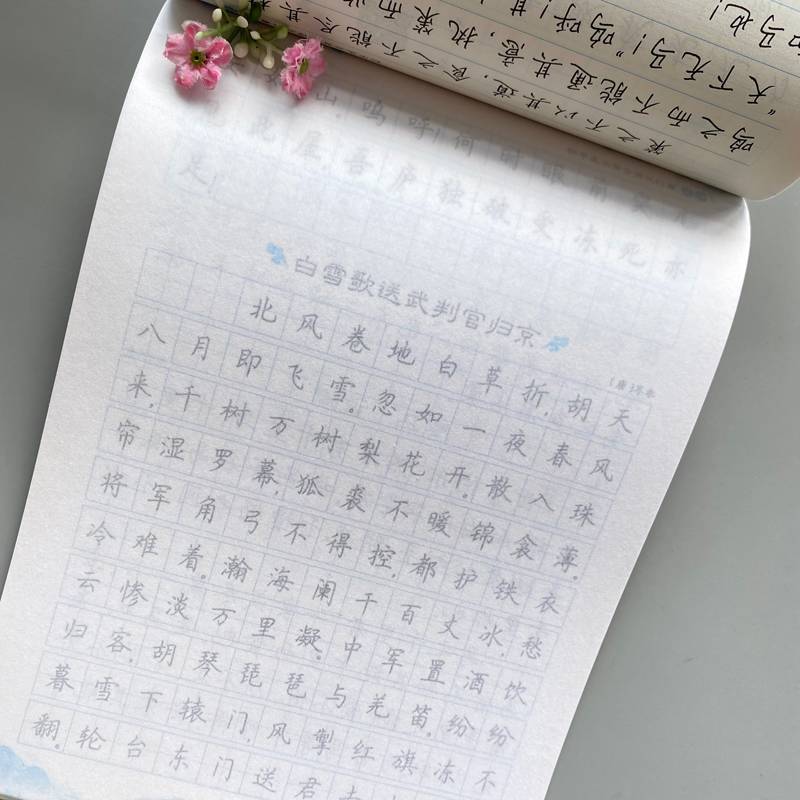 鸣之而不能通其意，执策而
“天下无马！”呜呼！其
策之不以其道，食之不能尽其
足！
吾庐独破受冻死亦
白雪歌送武判官归京
北风卷地白草折，胡天
八月即飞雪。忽如一夜春风
来，千树万树梨花开。散入珠
帘湿罗幕，狐裘不暖锦衾薄。
将军角弓不得控，都护铁衣
冷难着。瀚海阑干百丈冰，愁
云惨淡万里凝。中军置酒饮
归客，胡琴琵琶与羌笛。纷纷
暮雪下辕门，风掣红旗冻不
翻。轮台东门送君